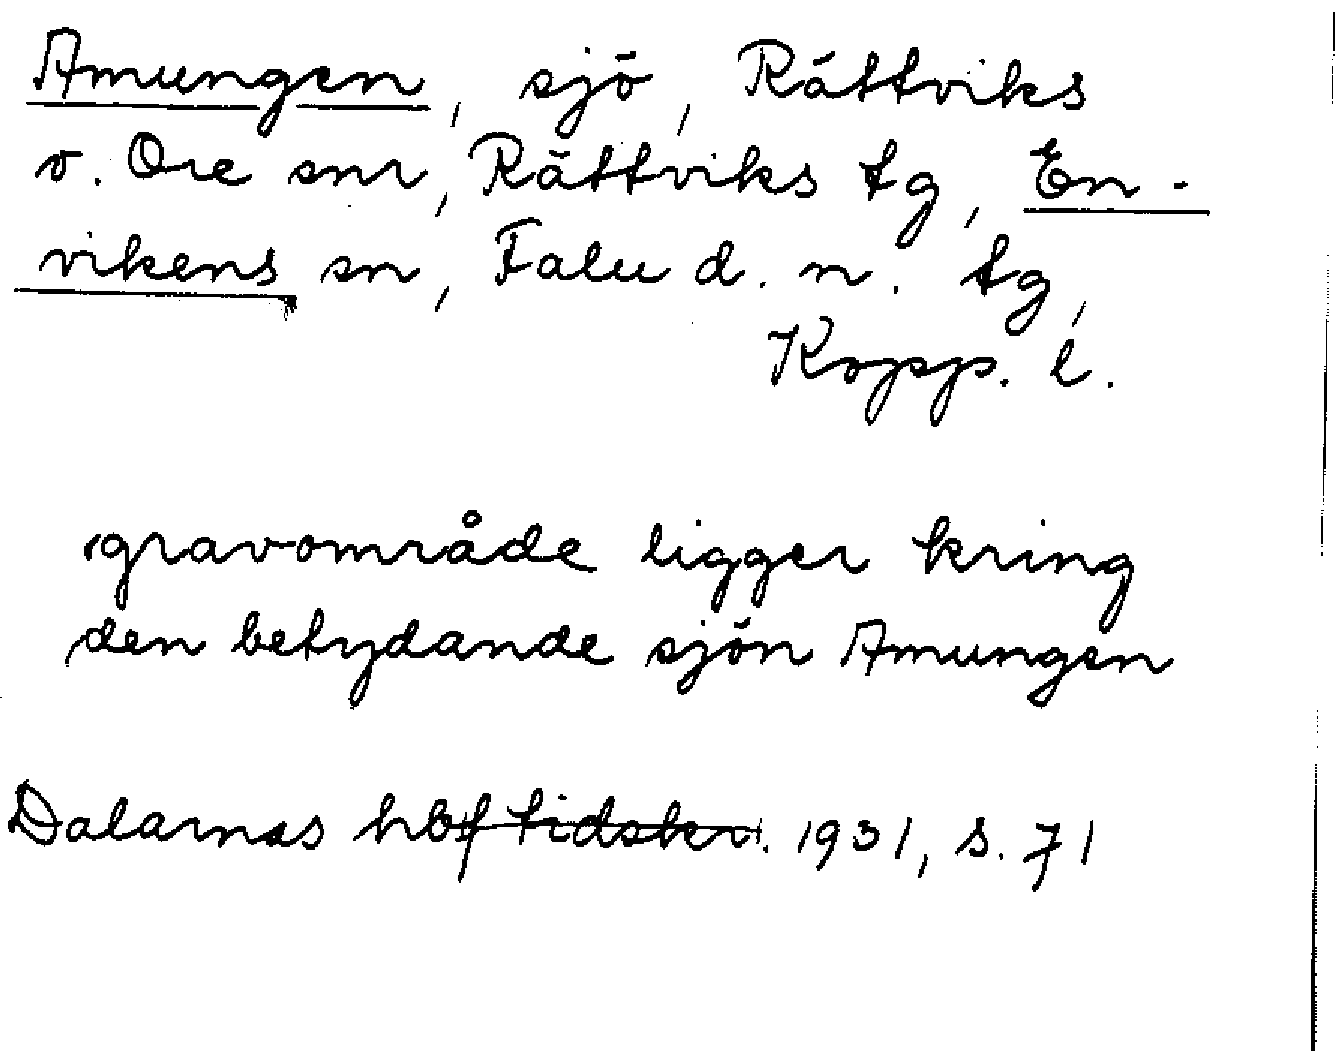 Amungen, sjö, Rättviks
o. Ore snr, Rättviks tg, En-
vikens sn, Falu d. n. tg,
Kopp. l.
gravområde ligger kring
den betydande sjön Amungen
Dalarnas hbf tidskr. 1931, s. 71